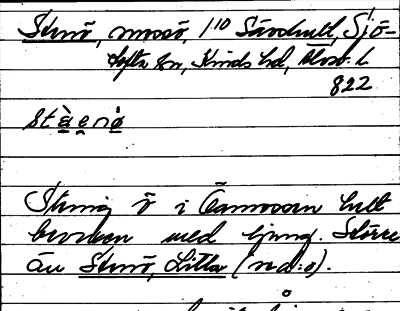 Stenö, mosö, 1/10 Sävshult, Sjö-
tofta sn, Kinds hd, Älvsb. l.
822
Stenig ö i Åamossen helt
bevuxen med ljung. Större
än Stenö, Lilla (nd:o).